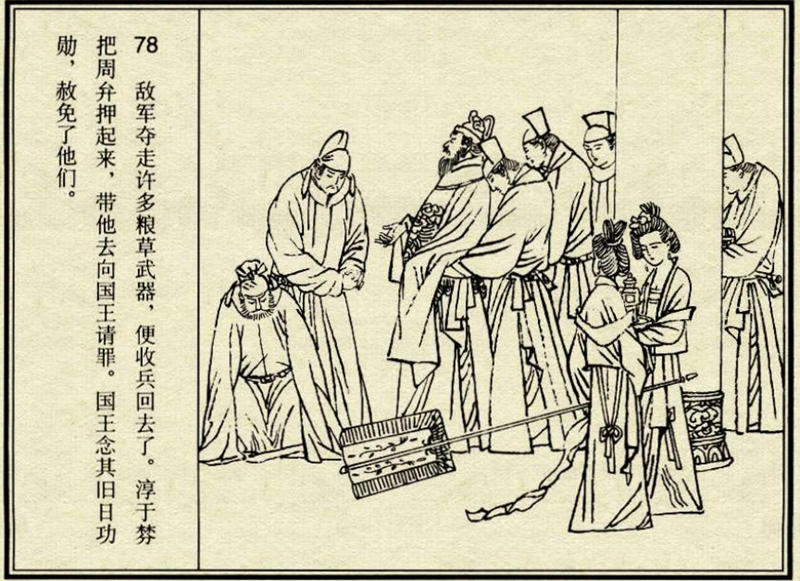 78 敌军夺走许多粮草武器，便收兵回去了。淳于棼
把周弁押起来，带他去向国王请罪。国王念其旧日功
勋，赦免了他们。